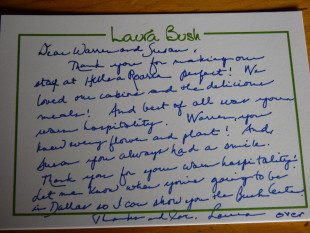 Laura Bush
Dear Warren and Susan,
Thank you for making our
stay at perfect! We
loved our cabins and the delicious
meals! And best of all was your
warm hospitality. Warren, you
knew every flower and plant! And,
Susan you always had a smile.
Thank you for your warm hospitality!
Let me know when you're going to be
in Dallas so I can show you the Bush Center
Thanks and Laura over